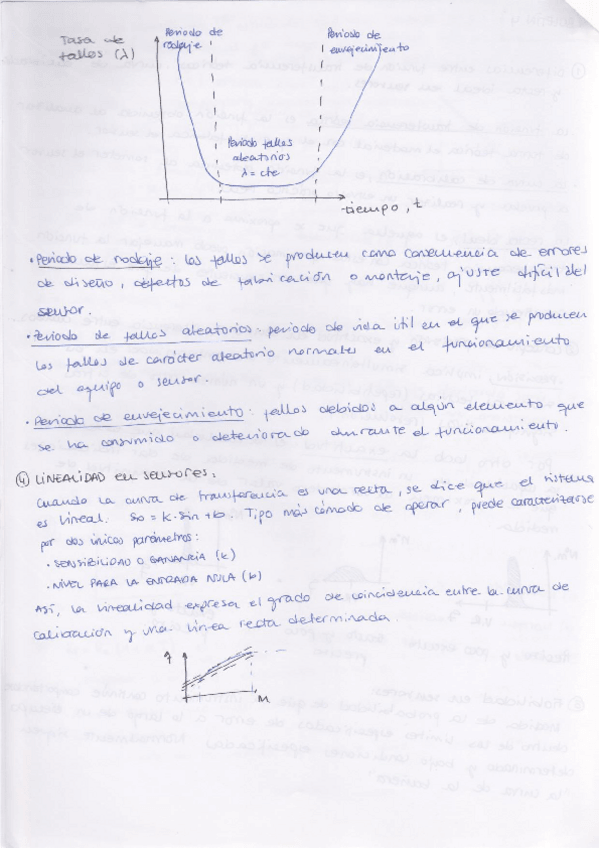 Tasa de
fallos (λ)
Periodo de
rodaje
Periodo de
envejecimiento
Periodo fallos
aleatorios
λ = cte
tiempo, t
• Periodo de rodaje: los fallos se producen como consecuencia de errores
de diseño, defectos de fabricación o montaje, ajuste difícil del
sensor.
• Periodo de fallos aleatorios: periodo de vida útil en el que se producen
los fallos de carácter aleatorio normales en el funcionamiento
del equipo o sensor.
• Periodo de envejecimiento: fallos debidos a algún elemento que
se ha consumido o deteriorado durante el funcionamiento.
④ LINEALIDAD en sensores.
Cuando la curva de transferencia es una recta, se dice que el sistema
es lineal. So = k·Sin + b. Tipo más cómodo de operar, puede caracterizarse
por dos únicos parámetros:
• SENSIBILIDAD O GANANCIA (k)
• NIVEL PARA LA ENTRADA NULA (b)
Así, la linealidad expresa el grado de coincidencia entre la curva de
calibración y una línea recta determinada
M